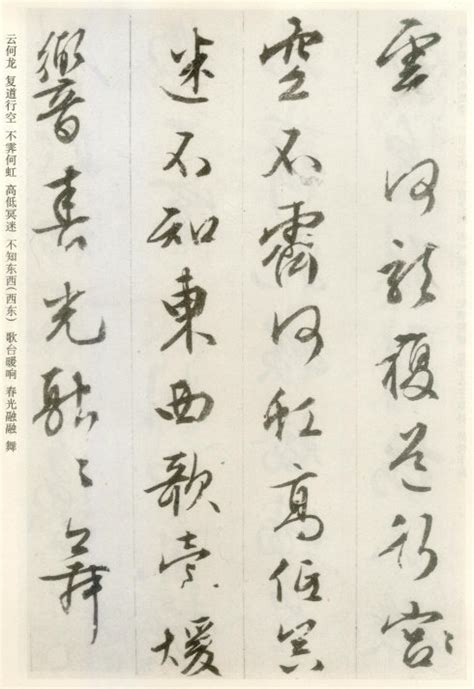 雲何龍複道行宮
空不霽何虹高低冥
迷不知東西歌臺暖
響春光融〻舞
云何龙 复道行空 不霁何虹 高低冥迷 不知东西(西东) 歌台暖响 春光融融 舞